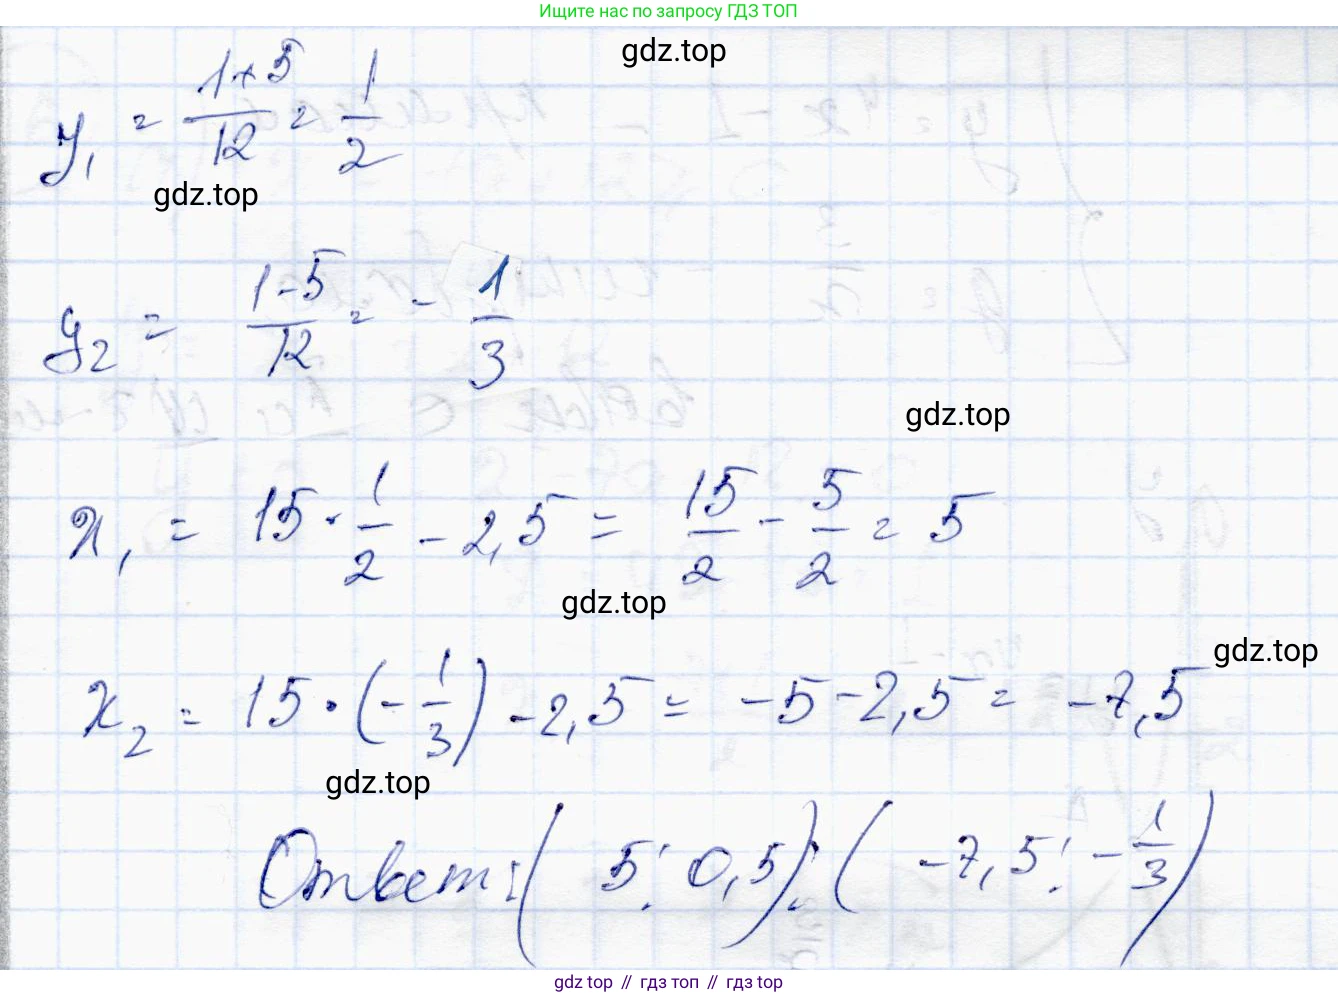 Ищите нас по запросу ГДЗ ТОП
gdz.top
y₁ = (1+5)/12 = 1/2
gdz.top
y₂ = (1-5)/12 = - 1/3
gdz.top
x₁ = 15 · 1/2 - 2,5 = 15/2 - 5/2 = 5
gdz.top
gdz.top
x₂ = 15 · (-1/3) - 2,5 = -5 - 2,5 = -7,5
gdz.top
Ответ: (5; 0,5); (-7,5; -1/3)
gdz top // гдз топ // гдз top